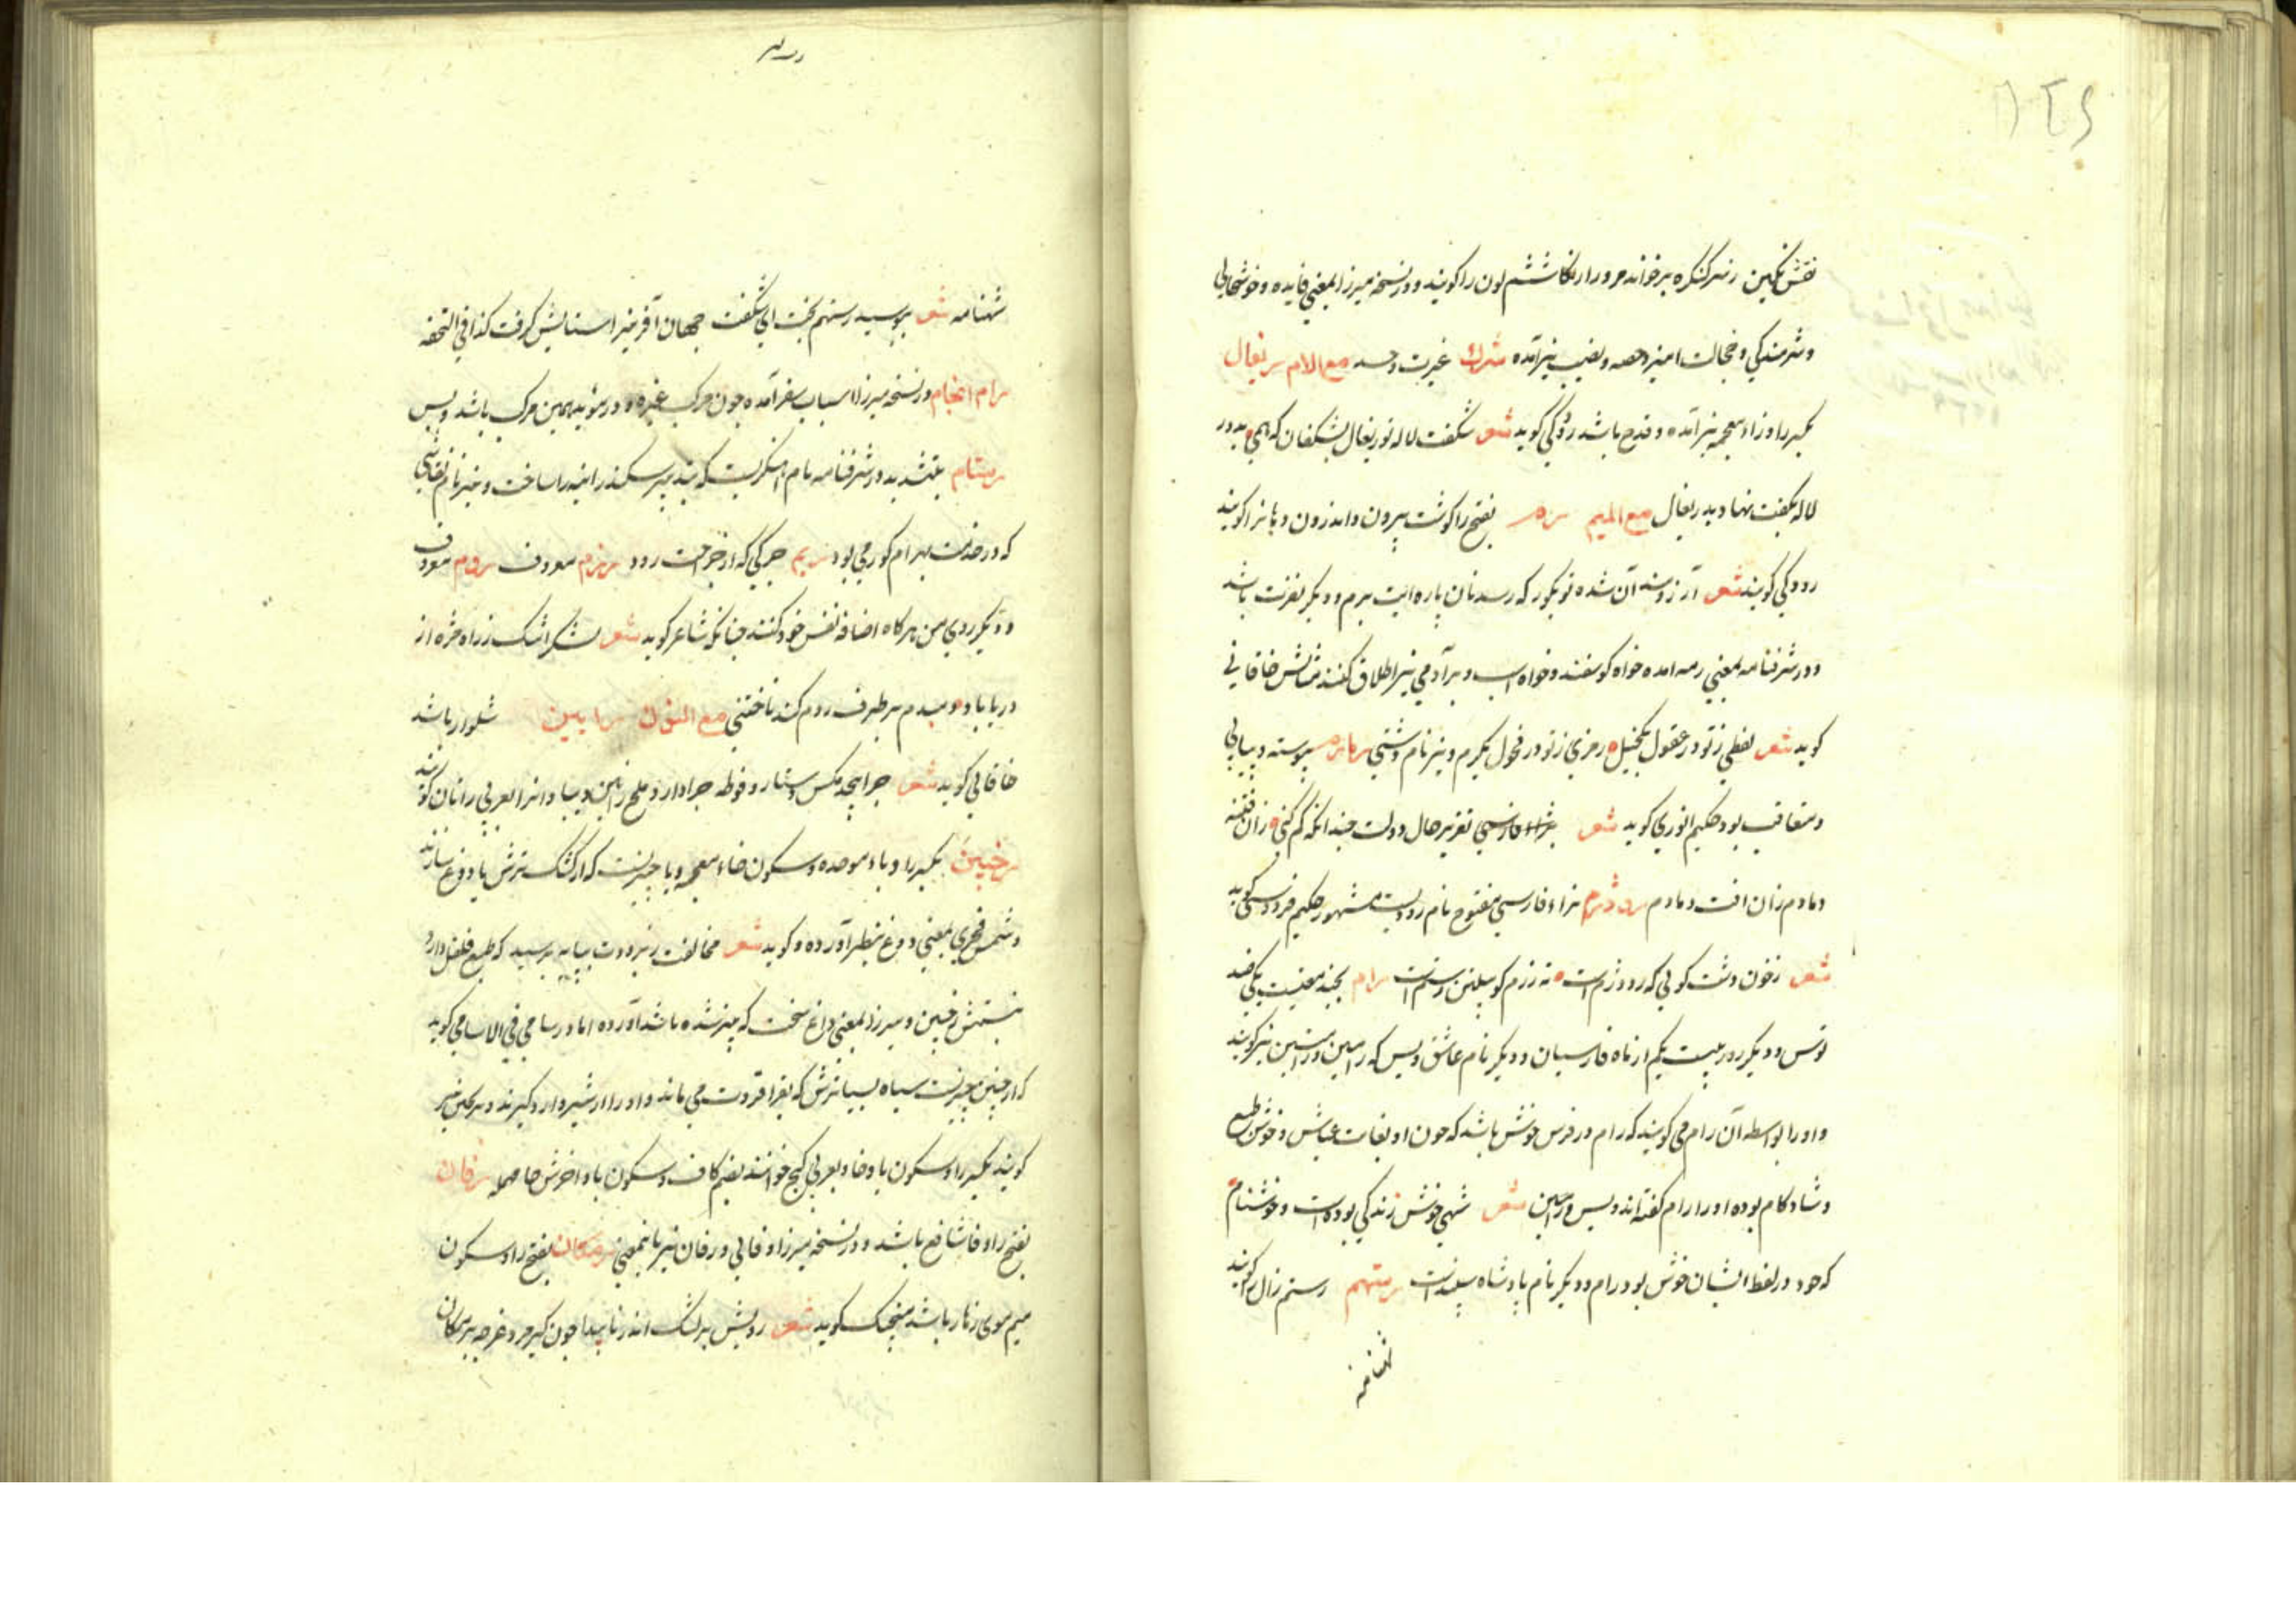 نقش نگین رنبر کنکره برخواند مرور ارنکا ششم لون را کویند و در نسخه میرزا بمعنی فایده و خوشحالی
و شرمندکی و خجالت امیز و حصه و نصیب نیز آمده شرک غیرت و حسد مع اللام ریغال
بکسر را و زاء معجمه نیز آمده و قدح باشد رودکی کوید شعر شکفت لاله تو ریغال بشکفان که همی بدور
لاله بکفت نهاده ریغال مع المیم رم بفتح را کوشت بیرون و اندرون دهانرا کویند
رودکی کویند شعر آرزومند آن شده تو بکور که رسد نان پاره ایت برم و دیکر نفرت باشد
و در شرفنامه بمعنی رمه امده خواه کوسفند و خواه اسپ و بر آدمی نیز اطلاق کنند مثالش خاقانی
کوید شعر لفظی ز تو در عقول یکخیل رمزی ز تو در فحول یکرم و نیز نام دشتی رمارم پیوسته و پیاپی
و متعاقب بود حکیم انوری کوید شعر تقریر حال دولت چندانکه کم کنی زان فتنه
دمادم زان افت دمادم رودژم بزاء فارسی مفتوح نام رودیست مشهور حکیم فردوسی کوید
شعر زخون دشت کوئی که رود زم است نه رزم کو پیلتن رستم است رام بچند معنیست یکی ضد
توس و دیکر روز بیست یکم از ماه فارسیان و دیکر نام عاشق ویس که رامین و رامتین نیز کویند
و او را بواسطه آن رام می کویند که رام در فرس خوش باشد که چون او بغایت عیاش و خوش طبع
و شادکام بوده او را رام کفته اند ویس و رامین شعر شهی خوش زندکی بوده است و خوشنام
که خود در لفظ ایشان خوش بود رام و دیکر نام پادشاه سلهت رستهم رستم زال کویند
شهنامه
شهنامه شعر بپرسید رستهم بخت ای شکفت جهان آفرینرا ستایش کرفت کذا فی التحفه
رام انجام در نسخه میرزا اسباب سفر آمده چون مرکب و غیره و در مؤید همین مرکب باشد و بس
رسام بتشدید در شرفنامه نام آهنکریست که بتدبیر سکندر اینه را ساخت و نیز نام نقاشی
که در خدمت بهرام کور می بود ریم چرکی که از جراحت رود رزم معروف روم معروف
و دیکر روی من هرکاه اضافه نفس خود کنند چنانکه شاعر کوید شعر لشکر اشک زراه مژه از
دریا بار دمبدم بر طرف روم کند تاختنی مع النون رانین شلوار باشد
خاقانی کوید شعر چرا پیچد مکس دستار فوطه چرا دارد ملخ رانین دیبا و انرا بعربی رانان کویند
رخبین بکسر را و باء موحده و سکون خاء معجمه و یا چیزیست که از کشک ترش یا دوغ سازند
و شمس فخری بمعنی دوغ بنظر آورده و کوید شعر مخالفت ز برودت بپایه برسید که طبع فلفل دارد
ببستش رخبین و میرزا بمعنی داغ سخت که پنیر شده باشد آورده اما در سامی فی الاسامی کوید
که رخبین چیزیست سیاه بسیار ترش که بقرا قروت می ماند و او را از شیر وا رد کیرند و ریخین نیز
کویند بکسر را و سکون یا و خا و بعربی کبح خوانند بضم کاف و سکون با و اخرش حا مهمله رفان
بفتح را و فا شافع باشد و در نسخه میرزا وفائی ورفان نیز باینمعنی رمکان بفتح را و سکون
میم موی زهار باشد منجیک کوید شعر